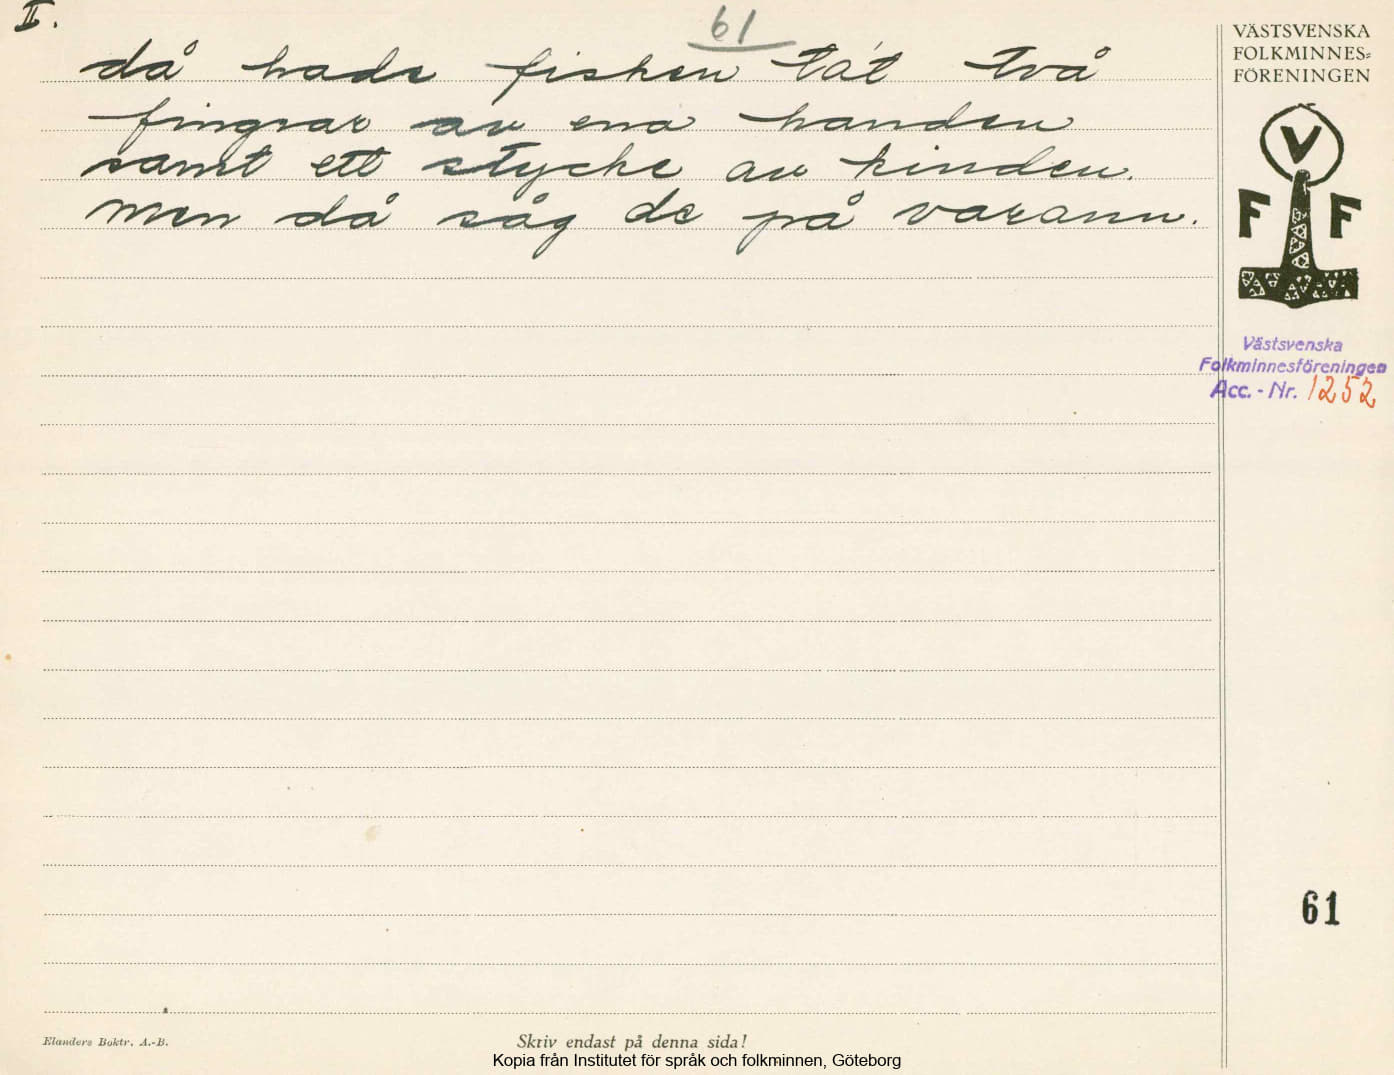 II.
61
då hade fisken tát två
fingrar av ena handen
samt ett stycke av kinden.
men då såg de på varann.
VÄSTSVENSKA
FOLKMINNES=
FÖRENINGEN
V
F F
Västsvenska
Folkminnesföreningen
Acc. - Nr. 1252
61
Elanders Boktr. A.-B.
Skriv endast på denna sida!
Kopia från Institutet för språk och folkminnen, Göteborg